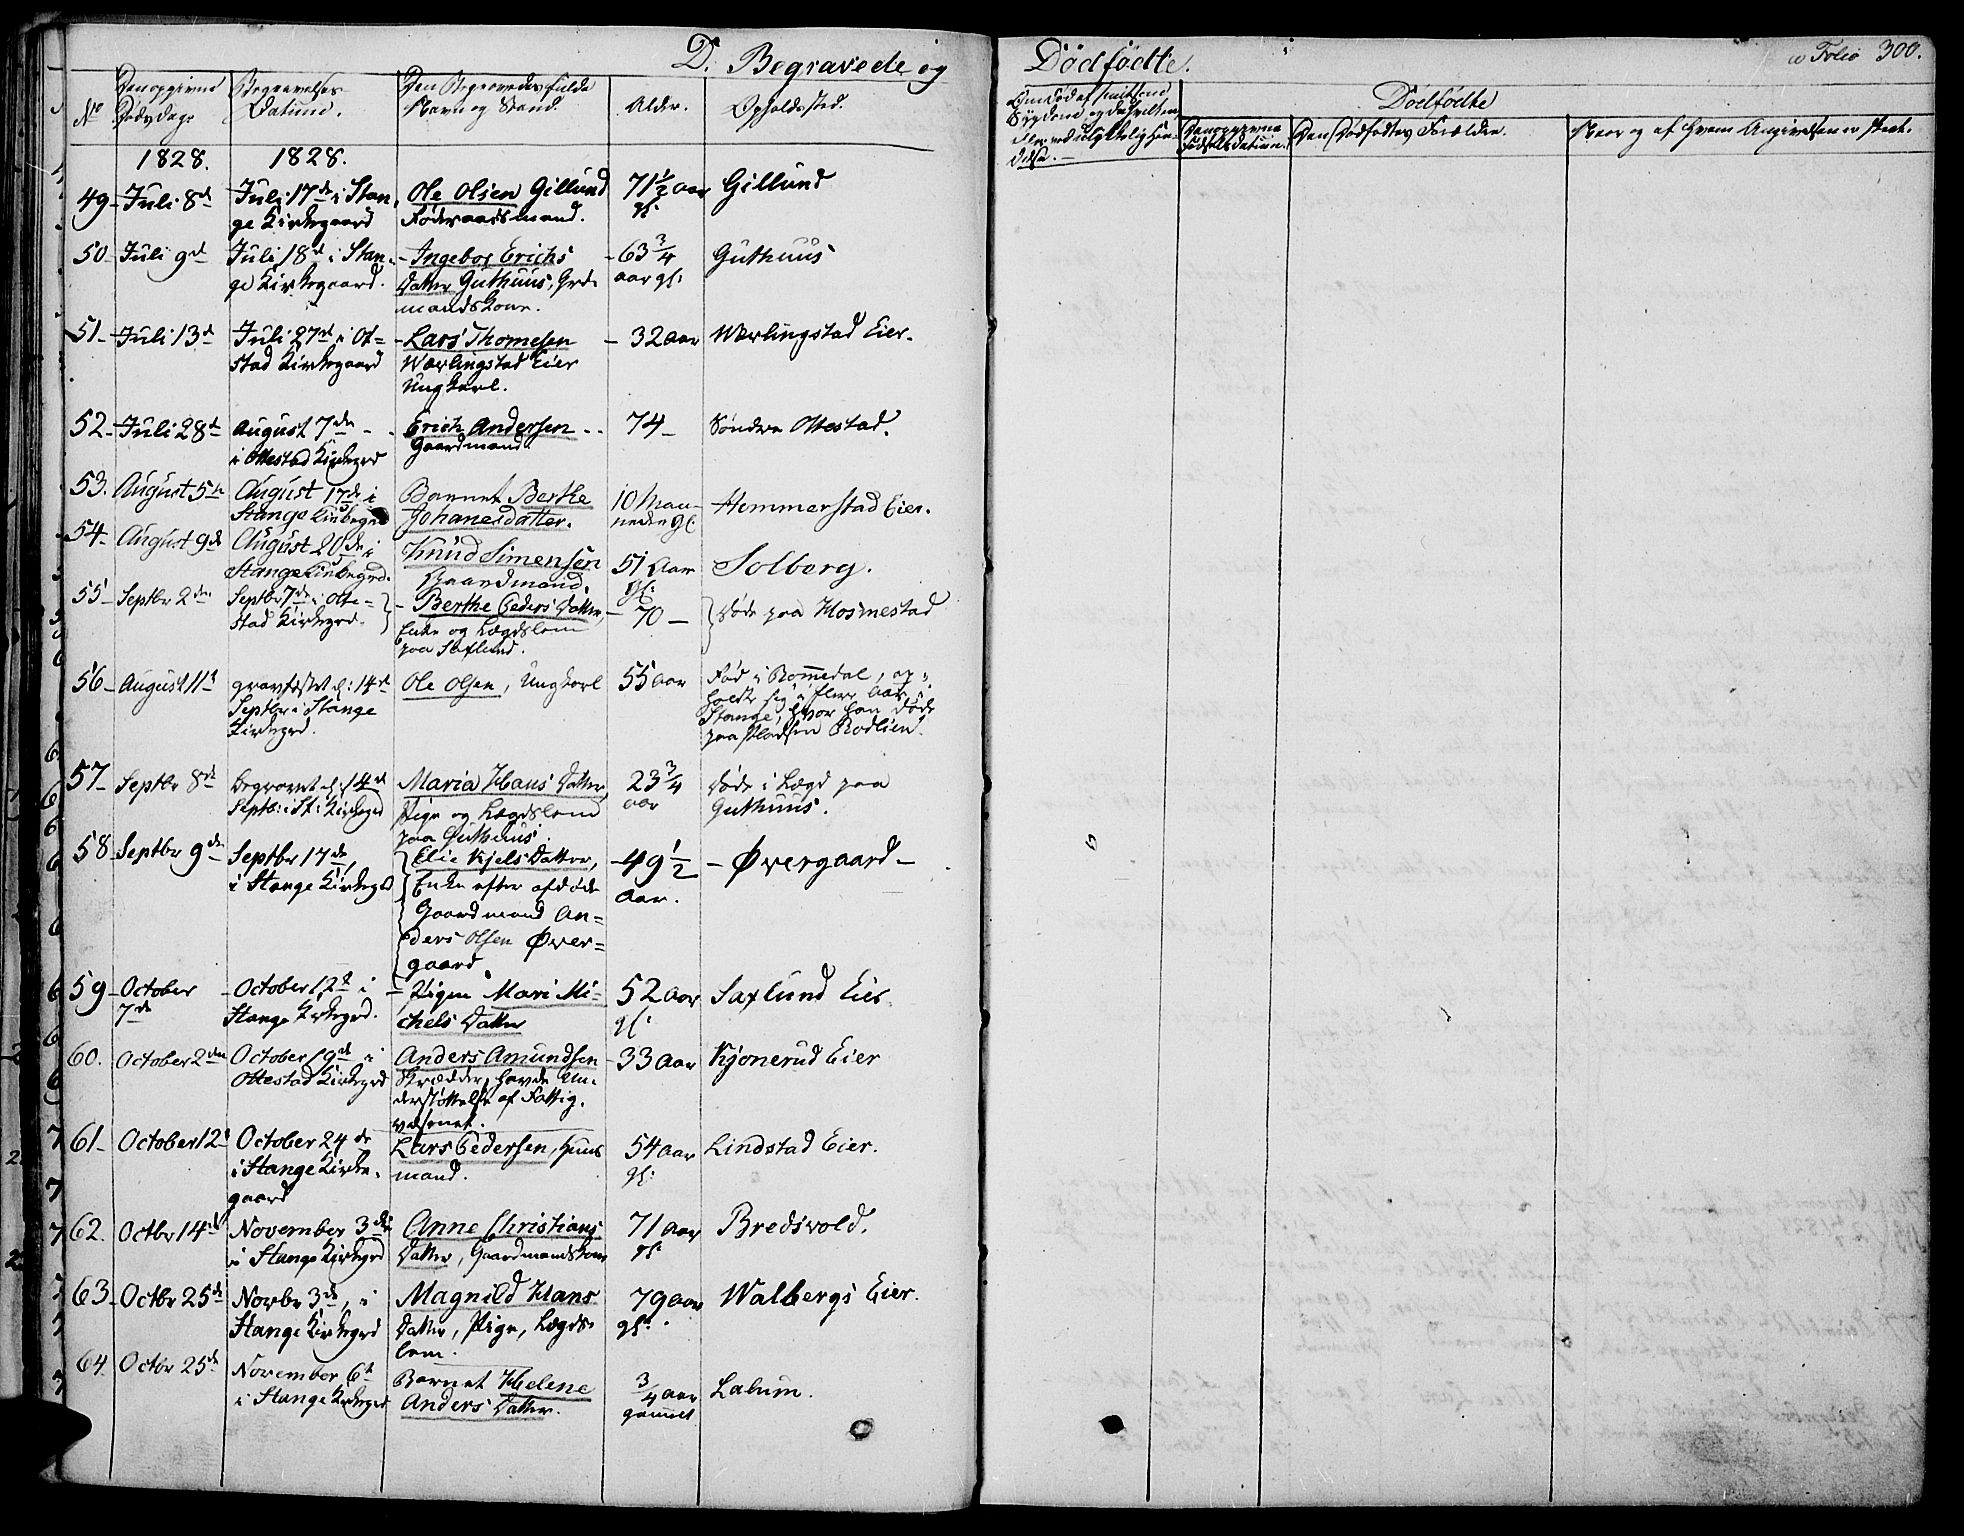 D. Begravede og Dødfødte.
Folio 300.
No
Den opgivne Dødsdag.
Begravelses Datum.
Den Begravedes fulde Navn og Stand.
Alder.
Opholdssted.
Dødfødte
Den opgivne Fødselsdatum.
Den Dødfødtes Forældre.
Naar og af hvem Angivelsen er skeet.
1828. 1828.
49- Juli 8de Juli 17de i Stange Kirkegaard Ole Olsen Gillund Føderaadsmand. 71½ aar gl: Gillund
50- Juli 9de Juli 18de i Stange Kirkegaard. Ingebor Erichs Datter Guthuus, Grdmandskone. 63¾ aar gl: Guthuus
51- Juli 13de Juli 27de i Otstad Kirkegaard Lars Thomesen Wærlingstad Eier Ungkarl. 32 aar Wærlingstad Eier.
52- Juli 28de August 7de i Ottestad Kirkegrd Erich Andersen Gaardmand. 74- Søndre Ottestad.
53. August 5te August 17de i Stange Kirkegrd Barnet Berthe Johanesdatter. 10 Maaneder gl: Hommerstad Eier.
54- August 9de August 20de i Stange Kirkegrd. Knud Simensen Gaardmand. 51 Aar gl: Solberg.
55- Septbr 2den Septbr 7de i Ottestad Kirkegrd. Berthe Peders Datter, Enke og Lægdslem paa Saxlund. 70- Døde paa Hosmestad
56- August 11te gravfæstet d: 14de Septbr i Stange Kirkegrd. Ole Olsen, Ungkarl 55 aar Fød i Romedal, opholdt sig i flere Aar i Stange, hvor han døde paa Pladsen Rodlien.
57- Septbr 8de begravet d: 14de Septbr: i St: Kirkegrd Maria Hans Datter, Pige og Lægdslem paa Guthuus. 23¾ aar døde i Lægd paa Guthuus.
58- Septbr 9de Septbr 17de, i Stange Kirkegrd Elie Kjels Datter, Enke efter afdøde Gaardmand Anders Olsen Øvergaard. 49½ Aar. Øvergaard-
59- October 7de October 12te i Stange Kirkegrd. Pigen Mari Michels Datter 52 aar gl: Saxlund Eier.
60. October 2den October 19de i Ottestad Kirkegrd Anders Amundsen Skrædder, havde Understøttelse af Fattigvæsenet. 33 Aar Kjonerud Eier
61- October 12te October 24de i Stange Kirkegaard Lars Pedersen, Huusmand. 54 aar gl: Lindstad Eier.
62. Octbr 14de November 3die i Stange Kirkegrd Anne Christians Datter, Gaardmandskone 71 aar gl: Bredsvold.
63- Octbr 25de Novbr 3de, i Stange Kirkegrd Magnild Hans Datter, Pige, Lægdslem. 79 aar gl: Walbergs Eier.
64. Octbr 25de November 6te i Stange Kirkegrd Barnet Helene Anders Datter. ¾ aar gammel Lalum.